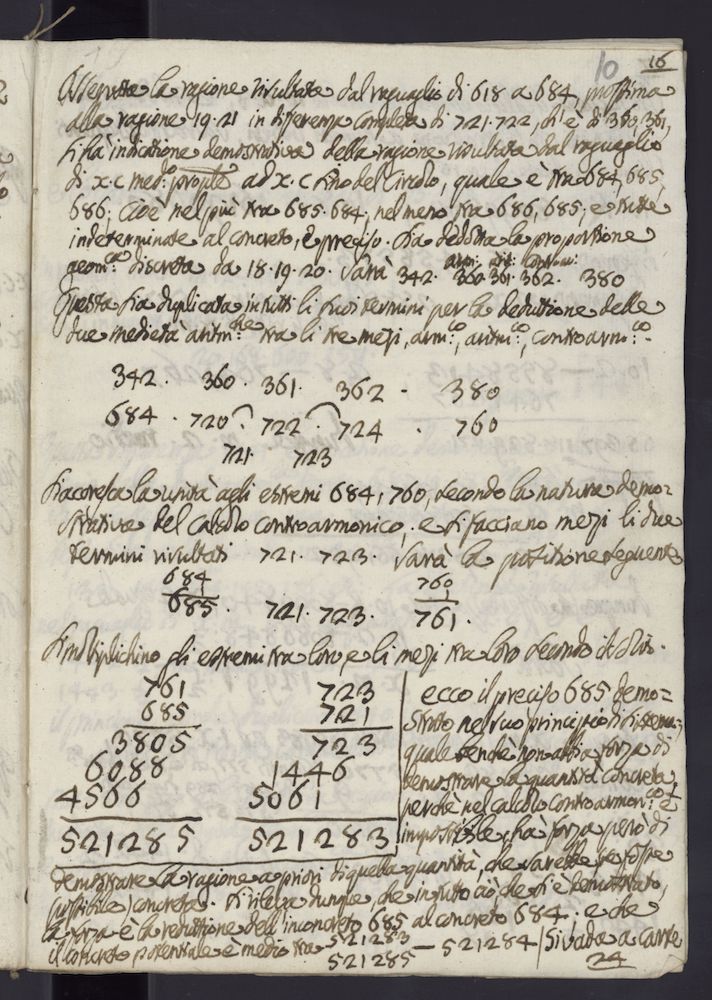 10 16
la ragione risultata dal raguaglio di 618 a 684, prossima
alla ragione 19·21 in differenza completa di 721·722, ch'è di 360·361,
si hà indicatione demostrativa della ragione risultata dal raguaglio
di x.c med: ad x.c fino del Circolo, quale è tra 684, 685,
686; cioè nel più tra 685·684, nel meno tra 686, 685; e tutte
indeterminate al concreto, è preciso. Sia dedotta la proportione
geom: discreta da 18·19·20. Sarà 342· 360·361·362· 380
Questa sia duplicata in tutti li suoi termini per la deduttione delle
due medietà aritm:che tra li tre mezi, arm:co, aritm:co, controarm:co.
342· 360· 361· 362 · 380
684 · 720 · 722 · 724 · 760
721· 723
Si acoresca la unità agli estremi 684, 760, secondo la natura demo=
strativa del calcolo controarmonico, e si facciano mezi li due
termini risultati 721· 723· Sarà la positione seguente
684 760
1
685· 721·723· 761·
Si moltiplichino gli estremi tra loro, e li mezi tra loro secondo il solito.
761 723
685 721
3805 723
6088 1446
4566 5061
521285 521283
ecco il preciso 685 demo=
strato nel suo principio di
quale benchè non abbia forza di
demostrare la quantità concreta,
perchè nel calcolo controarmon:co è
impossibile, hà forza però di
demostrare la ragione a priori di quella quantità, che sarebbe se fosse
possibile concreta. Si rileva dunque, che in tutto ciò che si è demostrato,
la forza è la reduttione dell'inconcreto 685 al concreto 684· e che
il concreto potentiale è medio tra 521283 — 521284 / Si vada a carte
521285 24